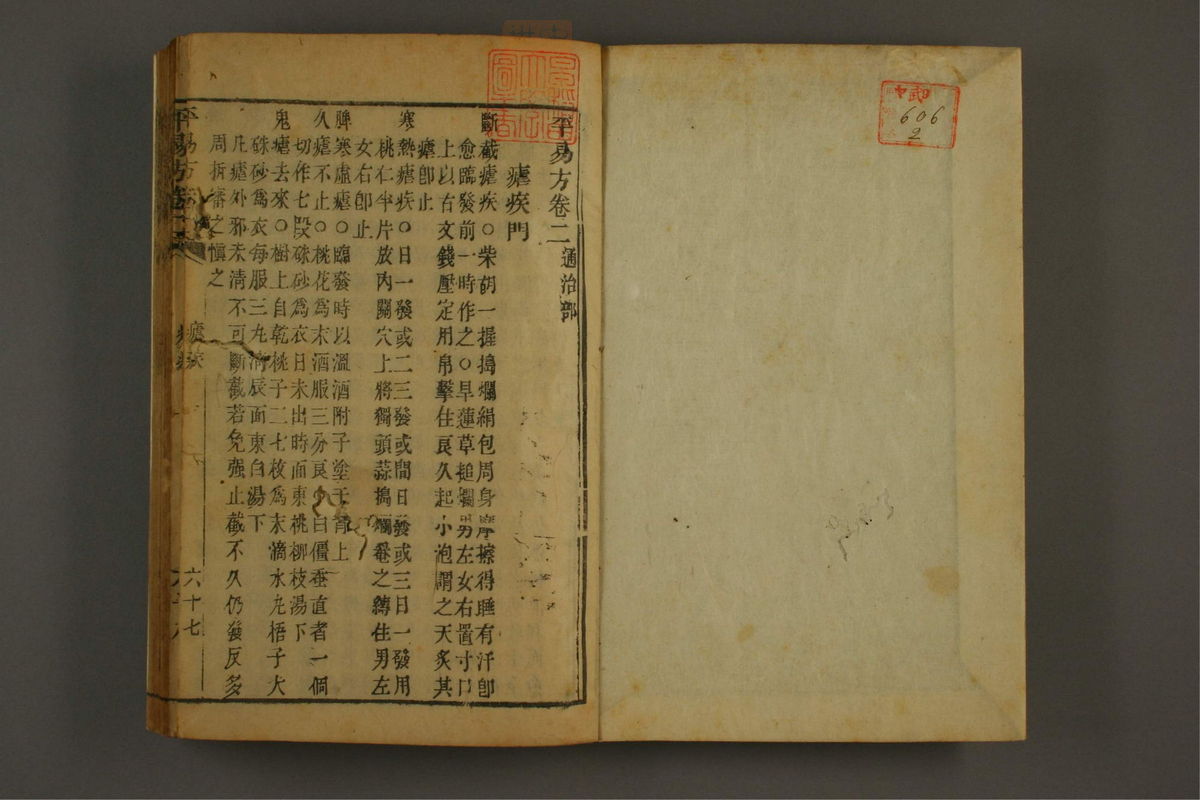 中武
606
2
平易方卷二 通治部
瘧疾門
斷截瘧疾○柴胡一握搗爛絹包周身摩擦得睡有汗卽
愈臨發前一時作之○旱蓮草搥爛男左女右置寸口
上以古文錢壓定用帛擊住良久起小泡謂之天炙其
瘧卽止
寒熱瘧疾○日一發或二三發或間日發或三日一發用
桃仁半片放內關穴上將獨頭蒜搗爛罨之縳住男左
女右卽止
脾寒虛瘧○臨發時以溫酒附子塗于背上
久瘧不止○桃花爲末酒服三分良○白僵蚕直者一個
切作七段硃砂爲衣日未出時面東桃柳枝湯下
鬼瘧去來○樹上自乾桃子二七枚爲末滴水丸梧子大
硃砂爲衣每服三丸淸辰面東白湯下
凡瘧外邪未淸不可斷截若免强止截不久仍發反多
周折審之愼之
平易方 瘧疾 六十七
平易方卷二